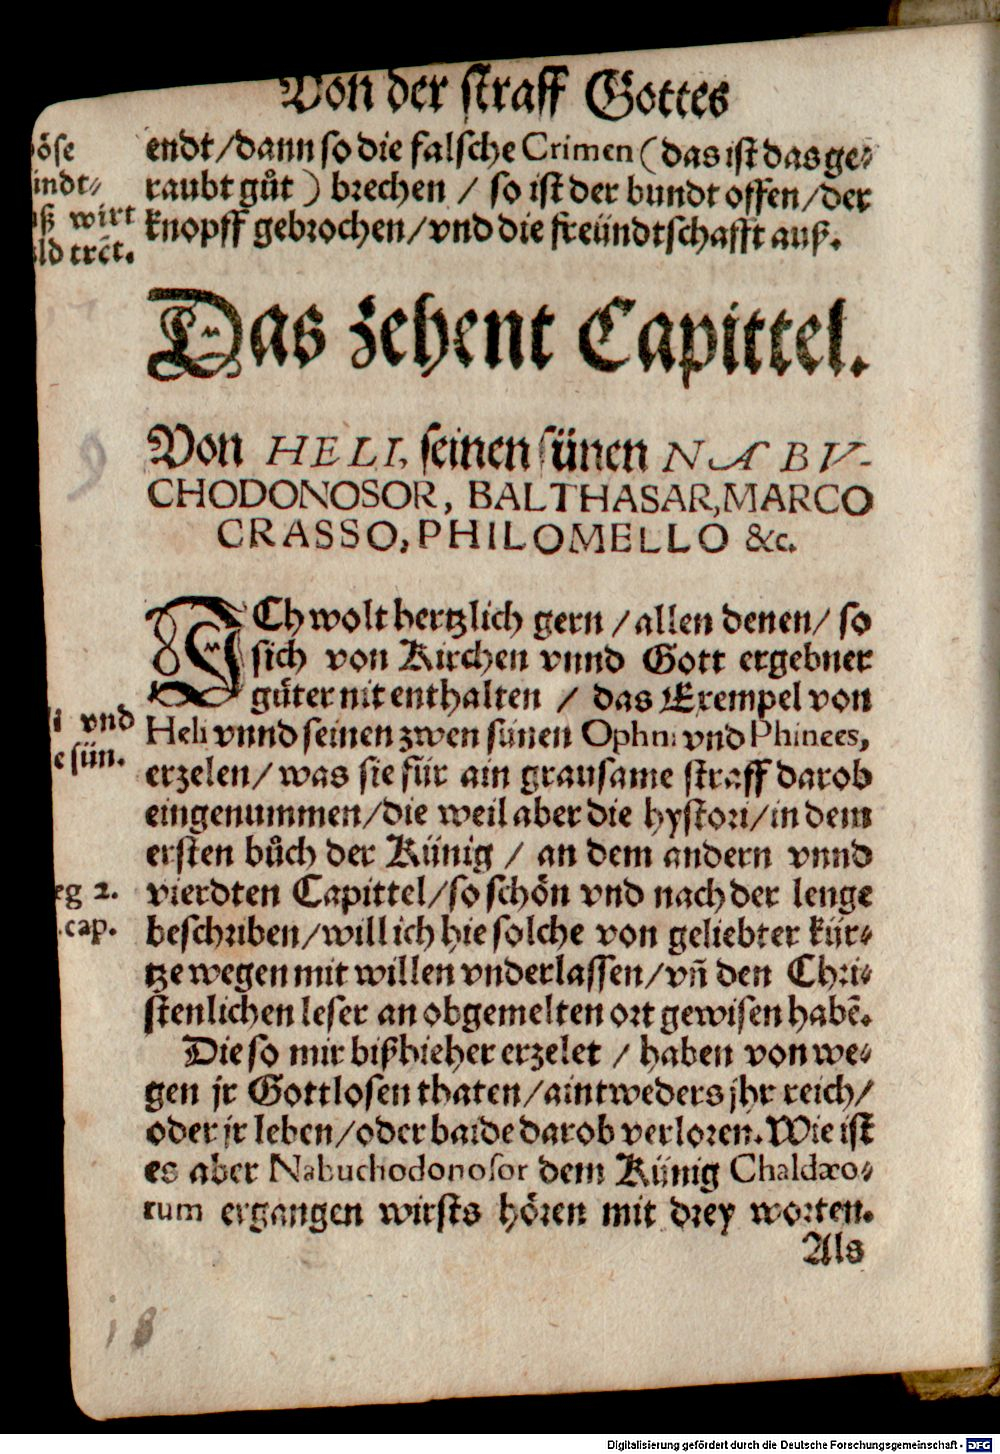 Von der straff Gottes
endt/dann so die falsche Crimen (das ist das ge-
raubt gůt) brechen / so ist der bundt offen/der
knopff gebrochen/vnd die freündtschafft auß.
öse
indt-
uß wirt
ld trēt.
Das zehent Capittel.
Von HELI, seinen sünen NABV-
CHODONOSOR, BALTHASAR, MARCO
CRASSO, PHILOMELLO &c.
ICh wolt hertzlich gern / allen denen / so
sich von Kirchen vnnd Gott ergebner
gůter nit enthalten / das Exempel von
Heli vnnd seinen zwen sünen Ophni vnd Phinees,
erzelen/ was sie für ain grausame straff darob
eingenummen/die weil aber die hystori/in dem
ersten bůch der Künig / an dem andern vnnd
vierdten Capittel/so schön vnd nach der lenge
beschriben/will ich hie solche von geliebter kür-
tze wegen mit willen vnderlassen/vñ den Chri-
stenlichen leser an obgemelten ort gewisen habē.
i vnd
e sün.
eg 2.
.cap.
Die so mir bißhieher erzelet / haben von we-
gen jr Gottlosen thaten/aintweders jhr reich/
oder jr leben/oder baide darob verloren. Wie ist
es aber Nabuchodonosor dem Künig Chaldæo-
rum ergangen wirsts hören mit drey worten.
Als
9
18
Digitalisierung gefördert durch die Deutsche Forschungsgemeinschaft - DFG